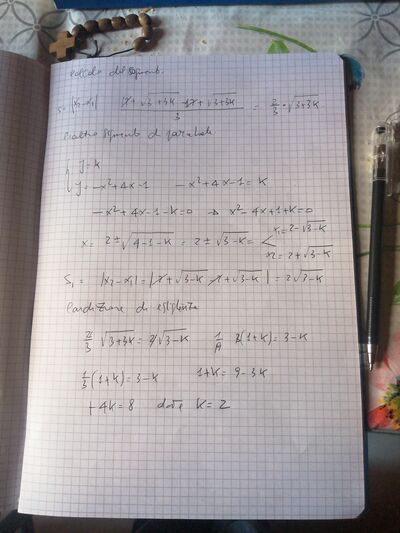 calcolo del segmento.
S = |x2-x1| 1/2+√3+3k -1/2+√3+3k / 3 = 2/3 · √3+3k
l'altro segmento di parabola
{ y=k
y=-x²+4x-1 -x²+4x-1=k
-x²+4x-1-k=0 → x²-4x+1+k=0
x = 2±√4-1-k = 2±√3-k = < x1=2-√3-k
x2=2+√3-k
S1 = |x2-x1| = |2+√3-k -2+√3-k| = 2√3-k
Condizione di
2/3 √3+3k = 2√3-k 1/9 3(1+k)=3-k
1/3(1+k)=3-k 1+k=9-3k
+4k=8 dove k=2